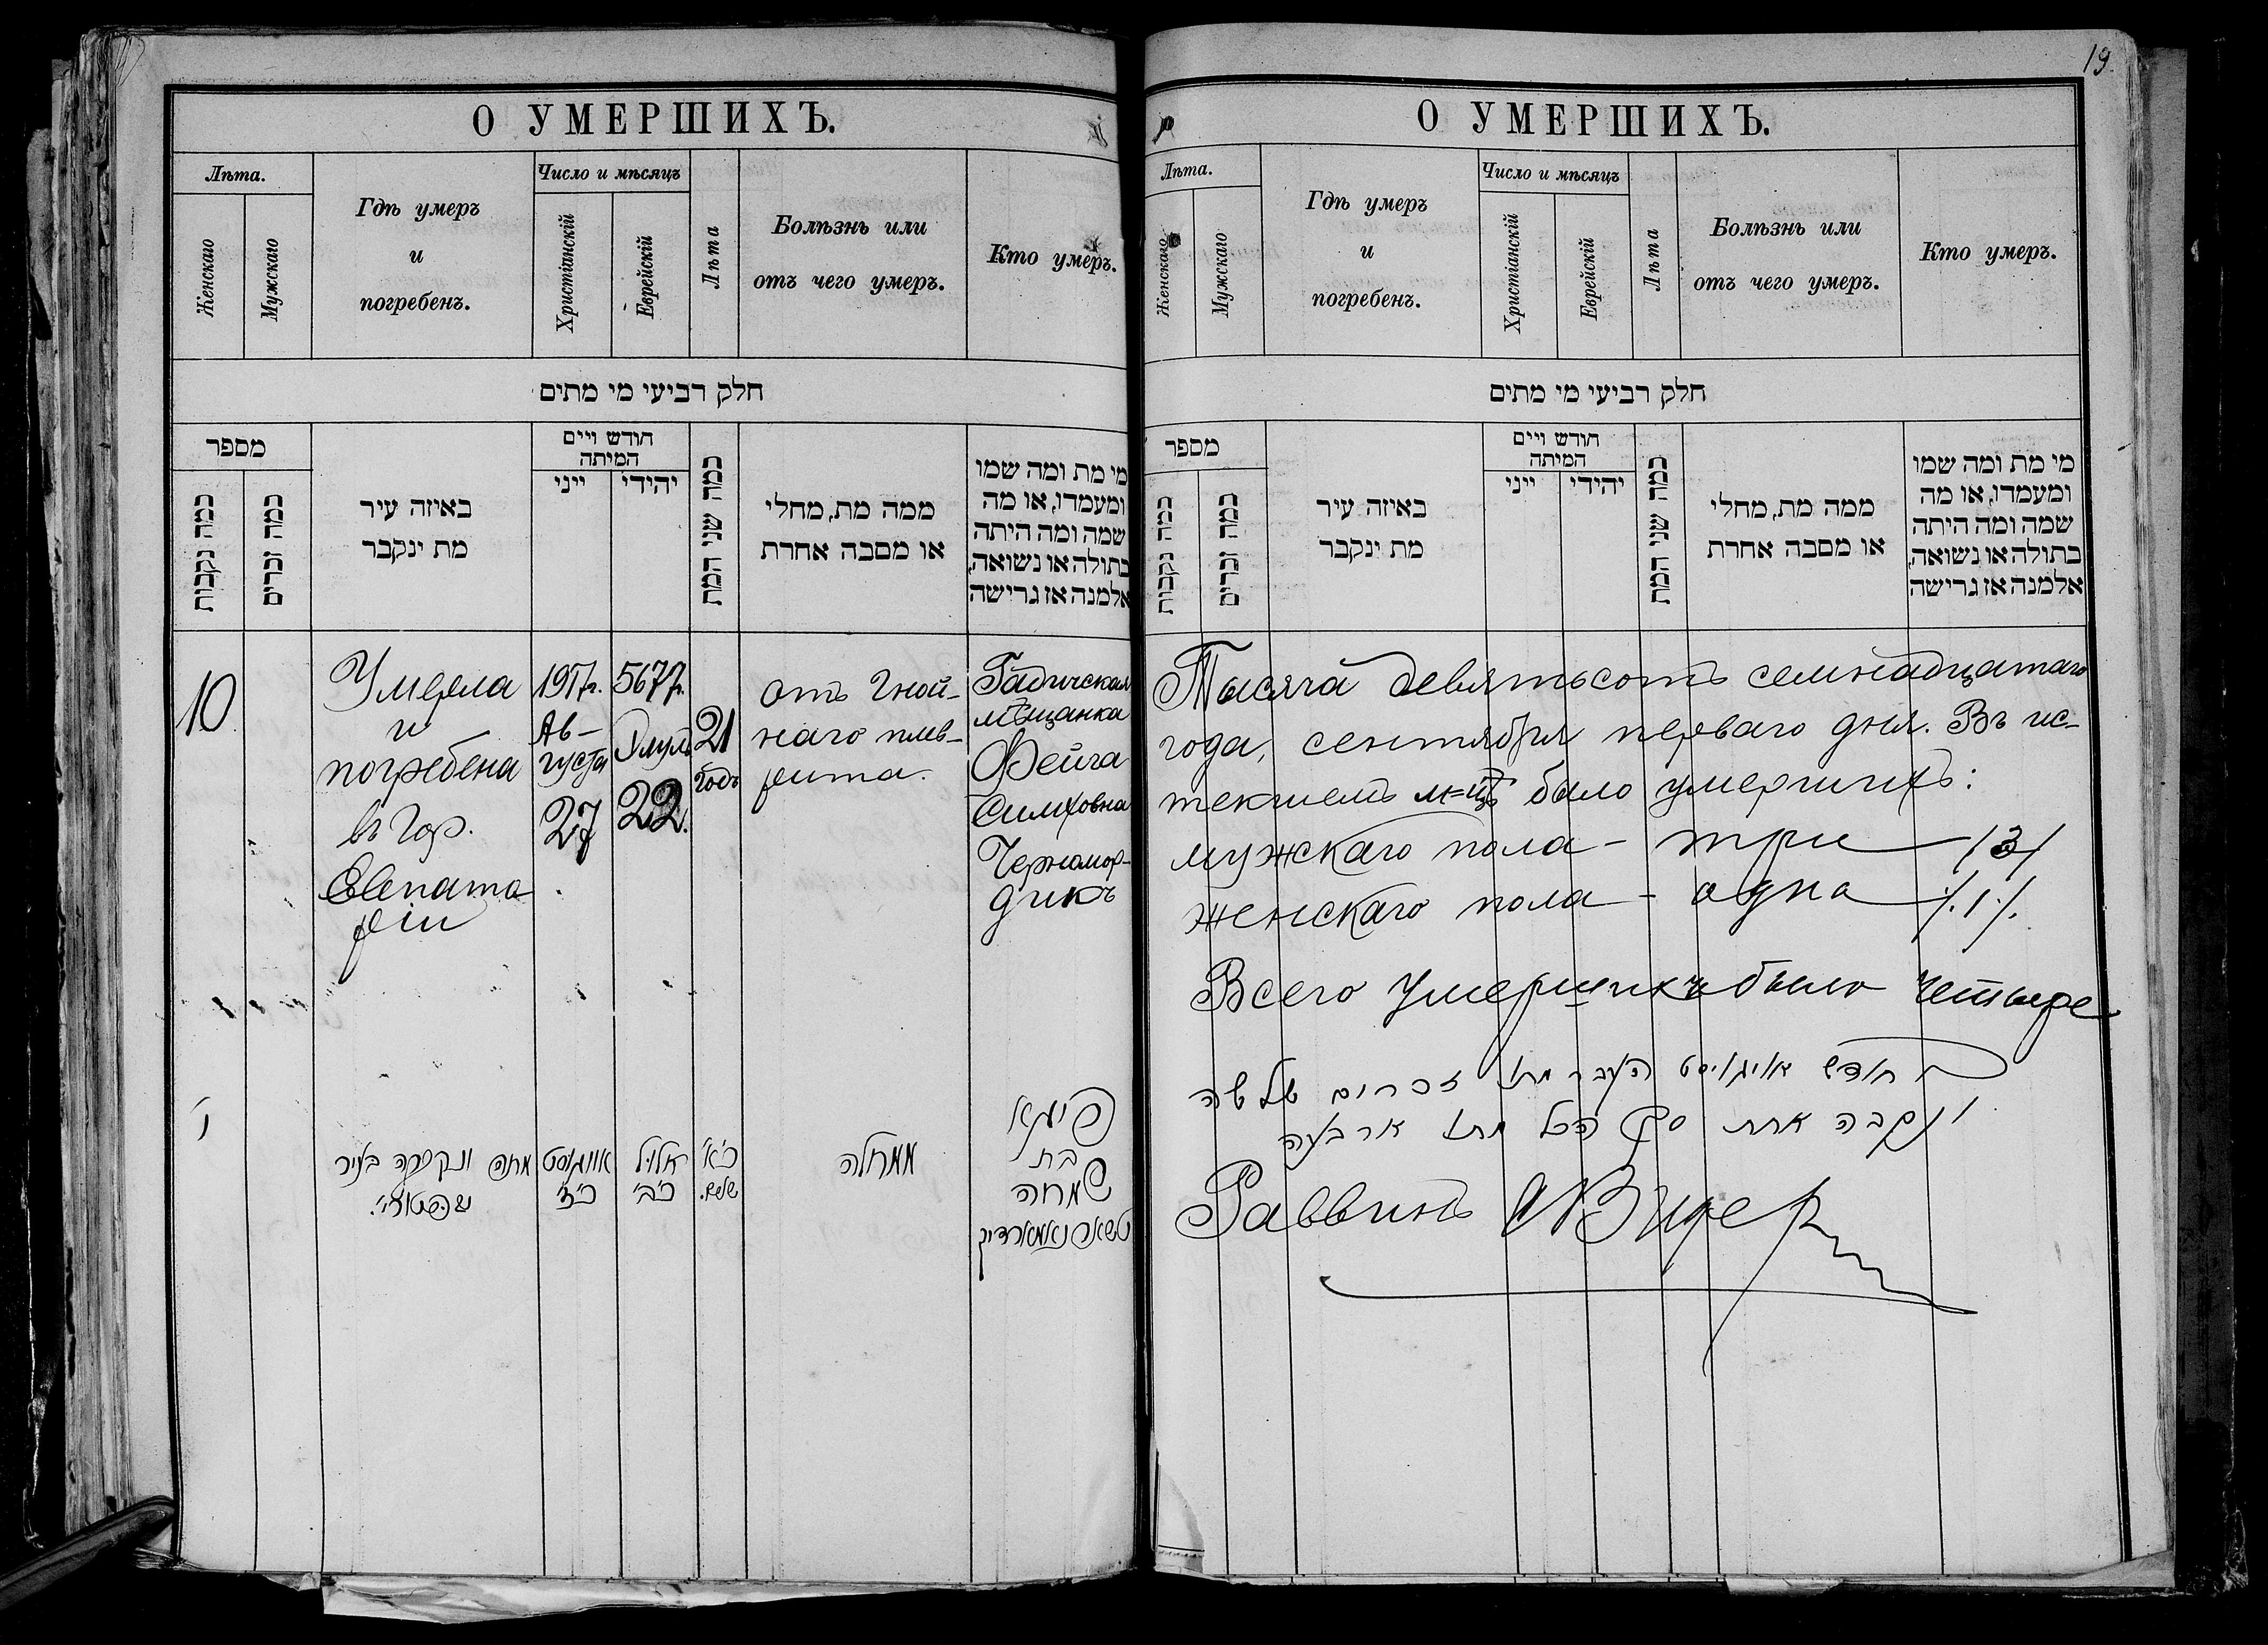 О УМЕРШИХЪ.
Лѣта.
Женскаго
Мужскаго
Гдѣ умеръ
и
погребенъ.
Число и мѣсяцъ
Христіанскій
Еврейскій
Лѣта
Болѣзнь или
отъ чего умеръ.
Кто умеръ.
חלק רביעי מי מתים
מספר
כמה נקבות
כמה זכרים
באיזה עיר
מת ינקבר
חודש ויים
המיתה
ייני
יהידי
כמה שני המת
ממה מת, מחלי
או מסבה אחרת
מי מת ומה שמו
ומעמדו, או מה
שמה ומה היתה
בתולה או נשואה,
אלמנה אז גרישה
10
Умерла
и
погребена
въ гор.
Евпато
ріи
1917г.
Ав-
густа
27
5677г.
Элула
22.
21
годъ
отъ гной-
наго плев-
рита.
Гадичская
мѣщанка
Фейга
Симховна
Черномор-
дикъ
י
מתה ונקברה בעיר
אווגוסט
כ"ז
אלול
כ"ב
כ"א
שנים.
ממחלה
פייגא
בת
שמחה
טשארנאמארדיק
19.
О УМЕРШИХЪ.
Лѣта.
Женскаго
Мужскаго
Гдѣ умеръ
и
погребенъ.
Число и мѣсяцъ
Христіанскій
Еврейскій
Лѣта
Болѣзнь или
отъ чего умеръ.
Кто умеръ.
חלק רביעי מי מתים
מספר
כמה נקבות
כמה זכרים
באיזה עיר
מת ינקבר
חודש ויים
המיתה
ייני
יהידי
כמה שני המת
ממה מת, מחלי
או מסבה אחרת
מי מת ומה שמו
ומעמדו, או מה
שמה ומה היתה
בתולה או נשואה,
אלמנה אז גרישה
Тысяча девятьсотъ семнадцатаго
года, сентября перваго дня. Въ ис-
текшемъ м-цѣ было умершихъ:
мужскаго пола - три /3/
женскаго пола - одна /.1./.
Всего умершихъ было четыре
לחודש אויגוסט העבר מתו זכרים שלשה
ונקבה אחת סך הכל מתו ארבעה
Раввинъ